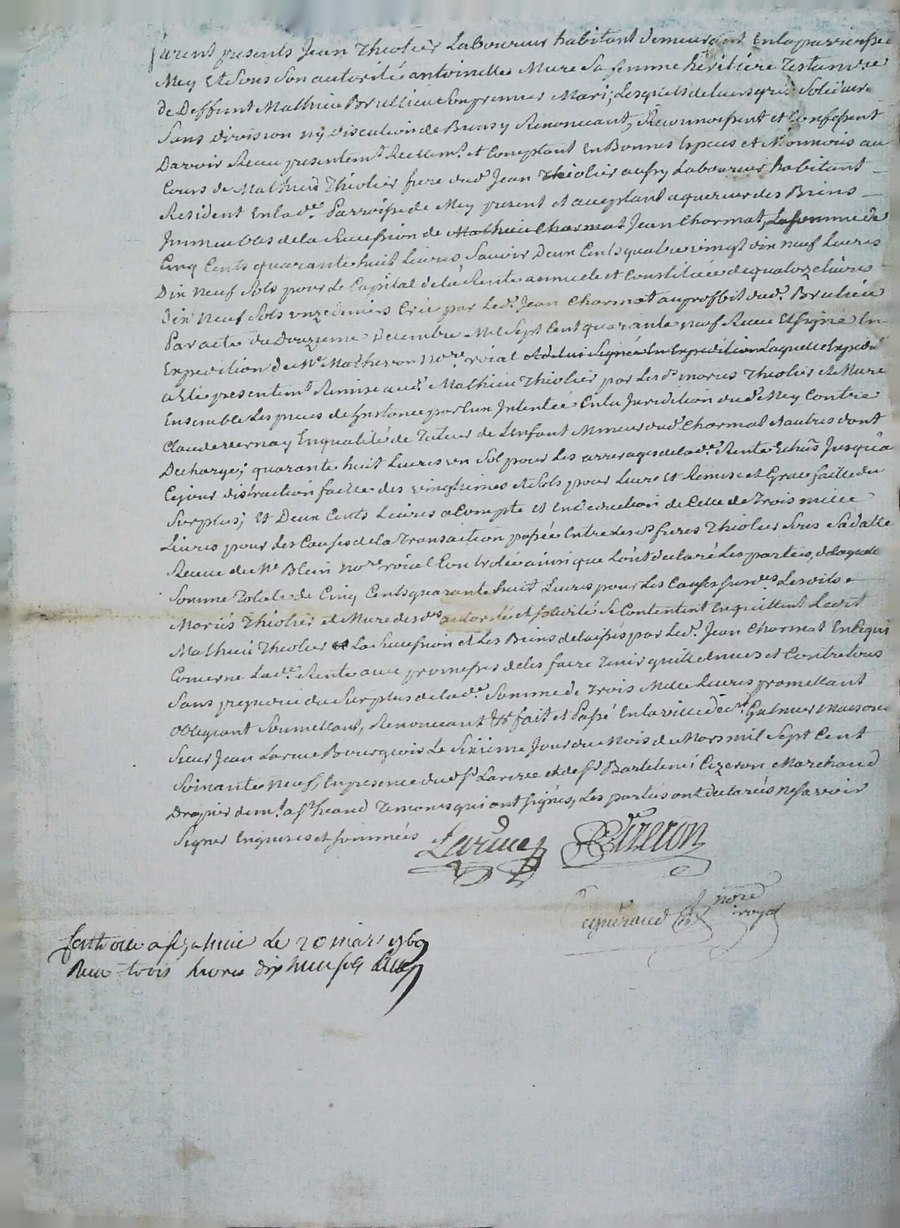 furent presents Jean Thiolier Laboureur habitant demeurant En la parroisse
Mey Et Sous Son autorité antoinette Mure Sa femme héritiere Testam.re
de Deffunt Mathieu Brullieu Son premier Mari; Lesquels de leur gré Solidaire
Sans division ny discution de Biens y Renonceant, Reconnoissent et Confessent
D'avoir Receu presentem.t Reellem.t et Comptant En Bonnes Especes et Monnoies au
Cours de Mathieu Thiolier frere dud. Jean Thiolier aussy Laboureur habitant
Resident En lad.e Parroisse de Mey present et acceptant acquereur des Biens
Immeubles de la Succession de Mathieu Charmat Jean Charmat, La Somme de
Cinq Cents quarante huit Livres Savoir Deux Cents quatre vingt dix neuf Livres
Dix Neuf Sols pour Le Capital de la Rente annuele et Constituée de quatorze livres
Dix Neuf Sols onze deniers Créé par Led. Jean Charmat au proffit dud. Brulieu
Par acte du Douzieme Decembre Mil Sept Cent quarante neuf Receu Et Signé En
Expedition de M.e Matheron No.re roial Laquelle Expedi.on
a Eté presentem.t Remise aud. Mathieu Thiolier par Lesd. maries Thiolier et Mure
Ensemble Les pieces de L'instance par Eux Intentée En la Juridition dud. Mey Contre
Claude vernay En qualité de Tuteur de L'enfant Mineur dud. Charmat Et autres dont
Decharge; quarante huit Livres un Sol pour Les arrerages de lad.e Rente Echus Jusqu'a
Ce jour distraction faitte des vingtiemes et Sols pour Livre et Remise et Grace faitte du
Surplus; Et Deux Cents Livres a Compte et En deduction de Celle de Trois mille
Livres pour Les Causes de la Transaction passée Entre Lesd. freres Thiolier Sous Sa datte
Receue de M.e Blein No.re roial Controlée ainsi que L'ont declaré Les parties, de laquelle
Somme Totale de Cinq Cents quarante huit Livres pour Les Causes susd.es Lesdits
Mariés Thiolier et Mure desd.es autorité et solidité Se Contentent En quittent Ledit
Mathieu Thiolier La Succession et Les Biens delaissés par Led. Jean Charmat En Ce qui
Concerne Lad.e Rente avec promesses de les faire Tenir quitte Envers et Contre tous
Sans prejudice du Surplus de lad.e Somme de Trois Mille Livres promettant
obligeant Soumettant, Renonceant &c fait et Passé En la ville de S.t Galmier Maison du
Sieur Jean Larue Bourgeois Le Sixieme Jour du Mois de Mars mil Sept Cent
Soixante Neuf, En presence dud. S.r Larue et de S.r Bartelemi Cizeron Marchand
Drapier Temoins qui ont signés, Les parties ont declarés ne Savoir
Signer Enquises et Sommées
Larue Cizeron
no.re
royal
a S.t Galmier Le 20 mars 1769
Receu trois livres dix huit sols